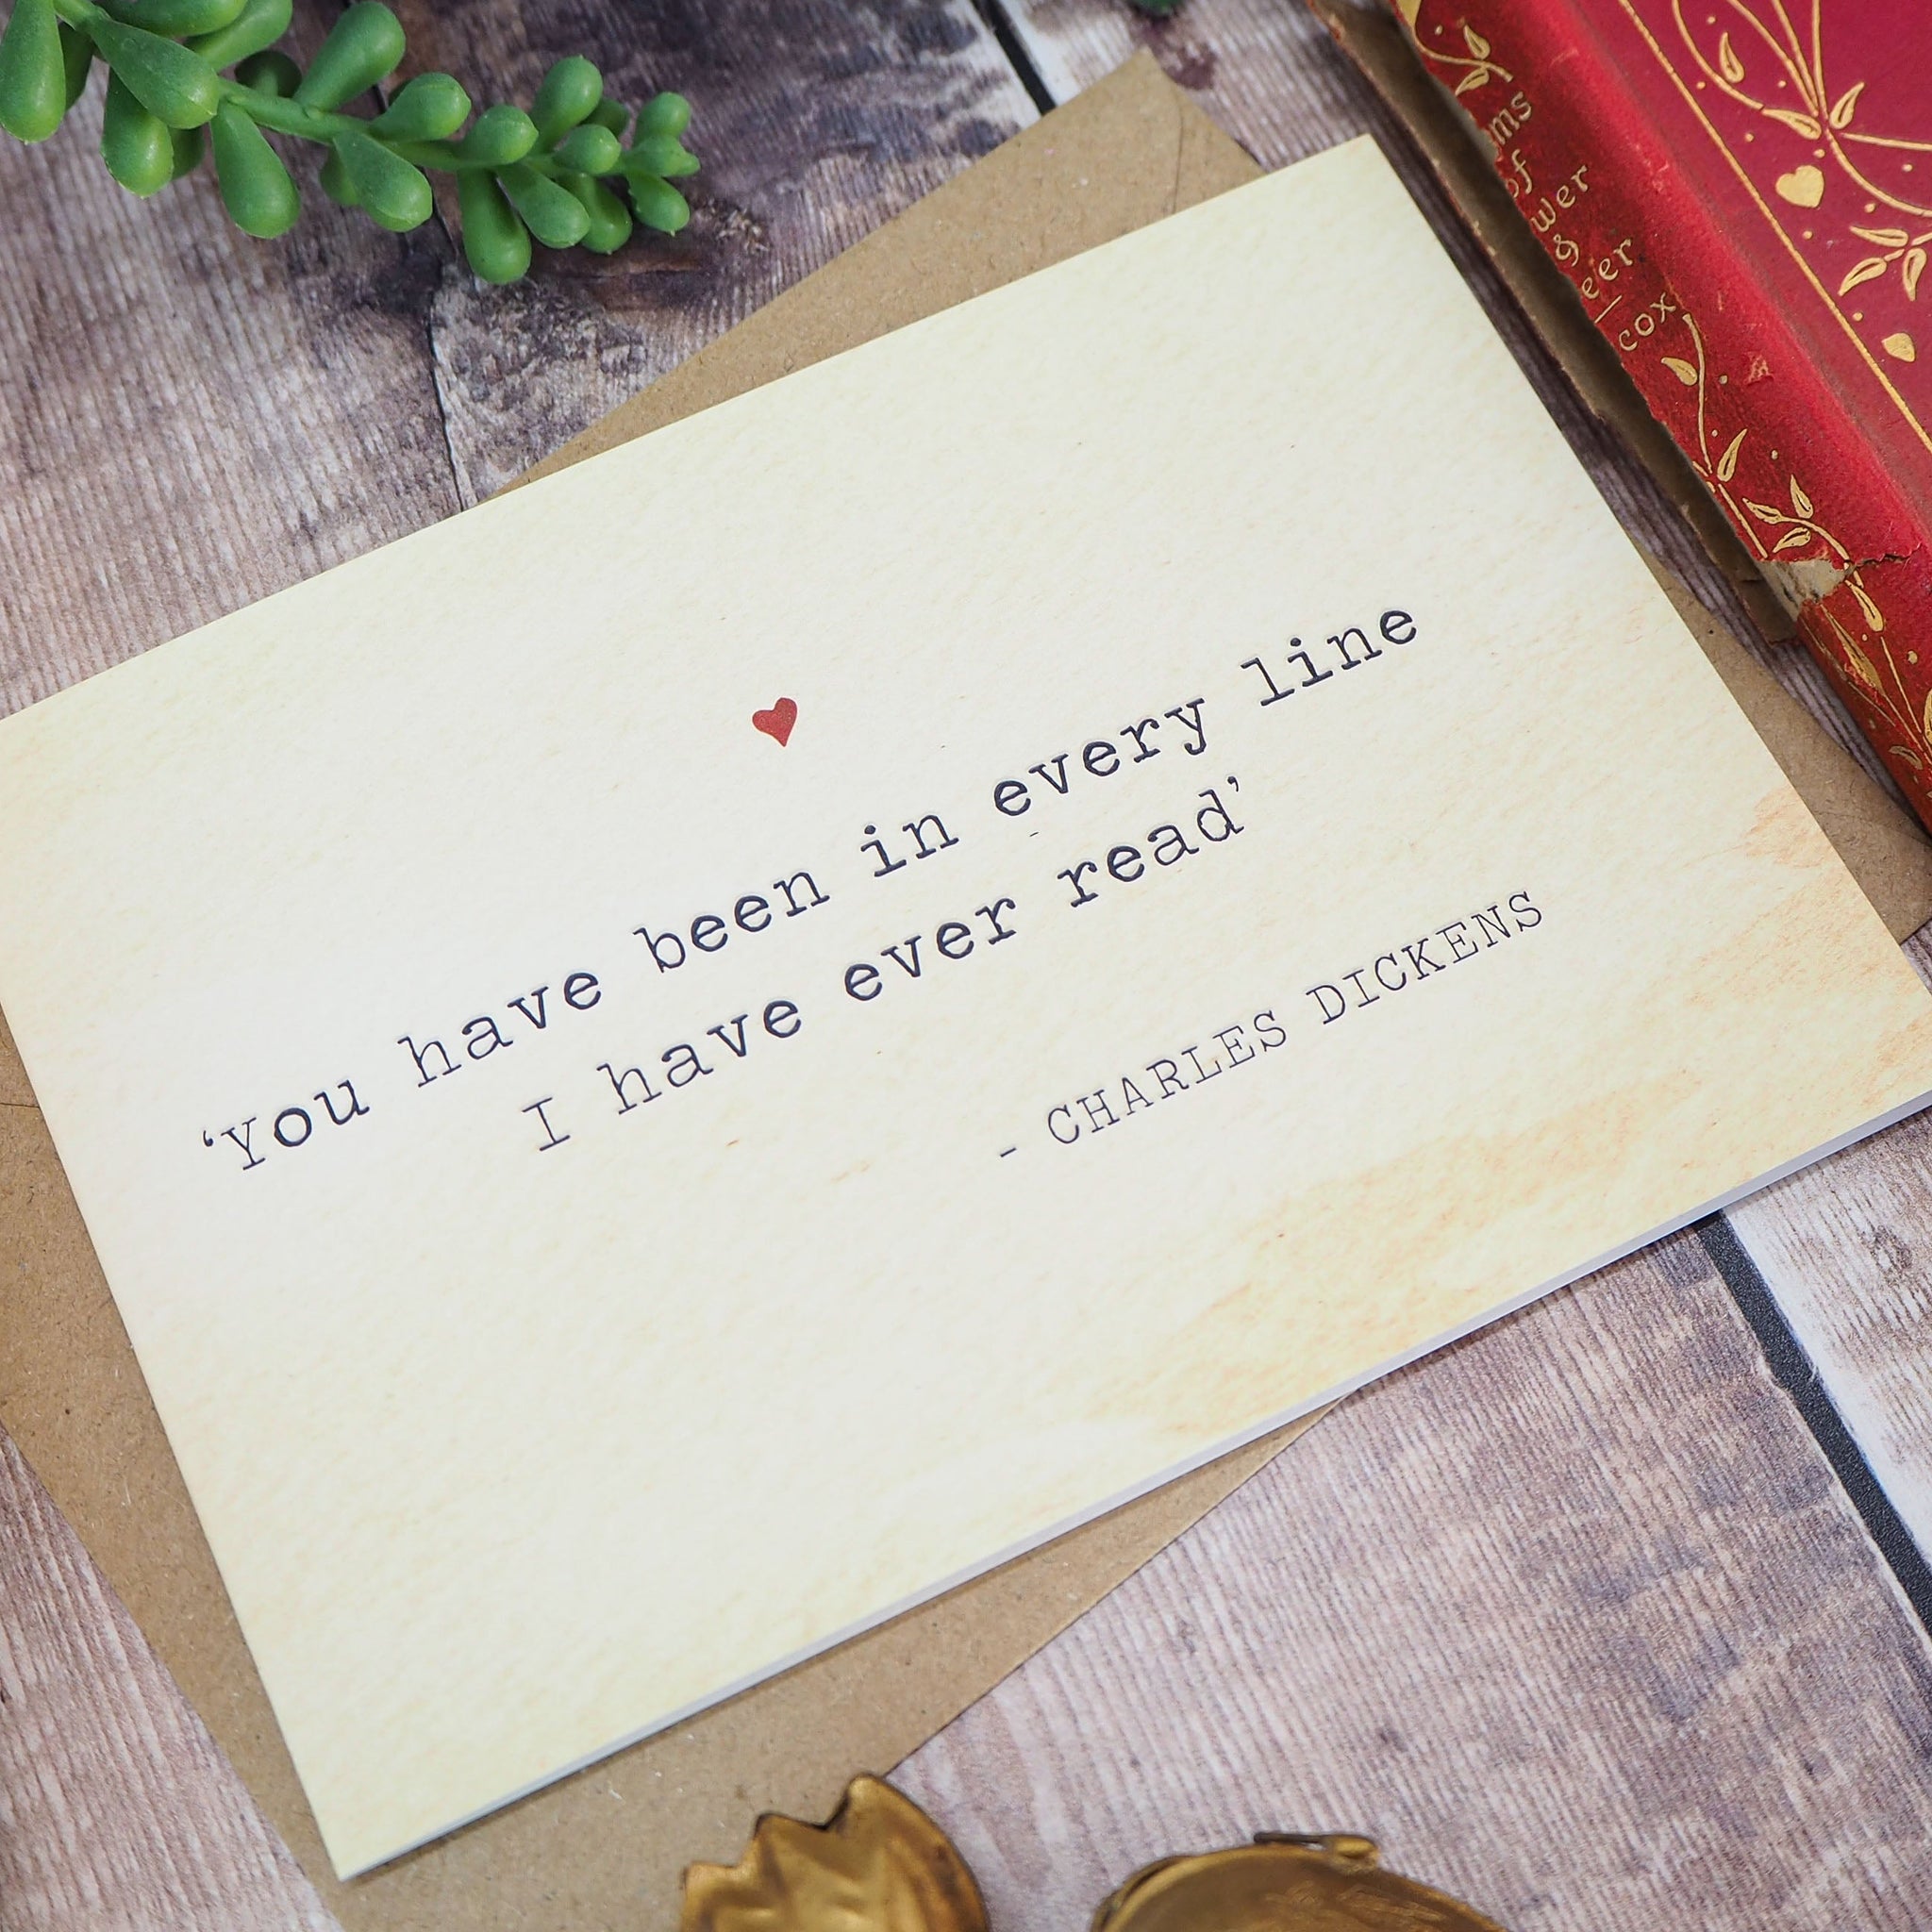 ‘You have been in every line
I have ever read’
- CHARLES DICKENS
of
&
cox